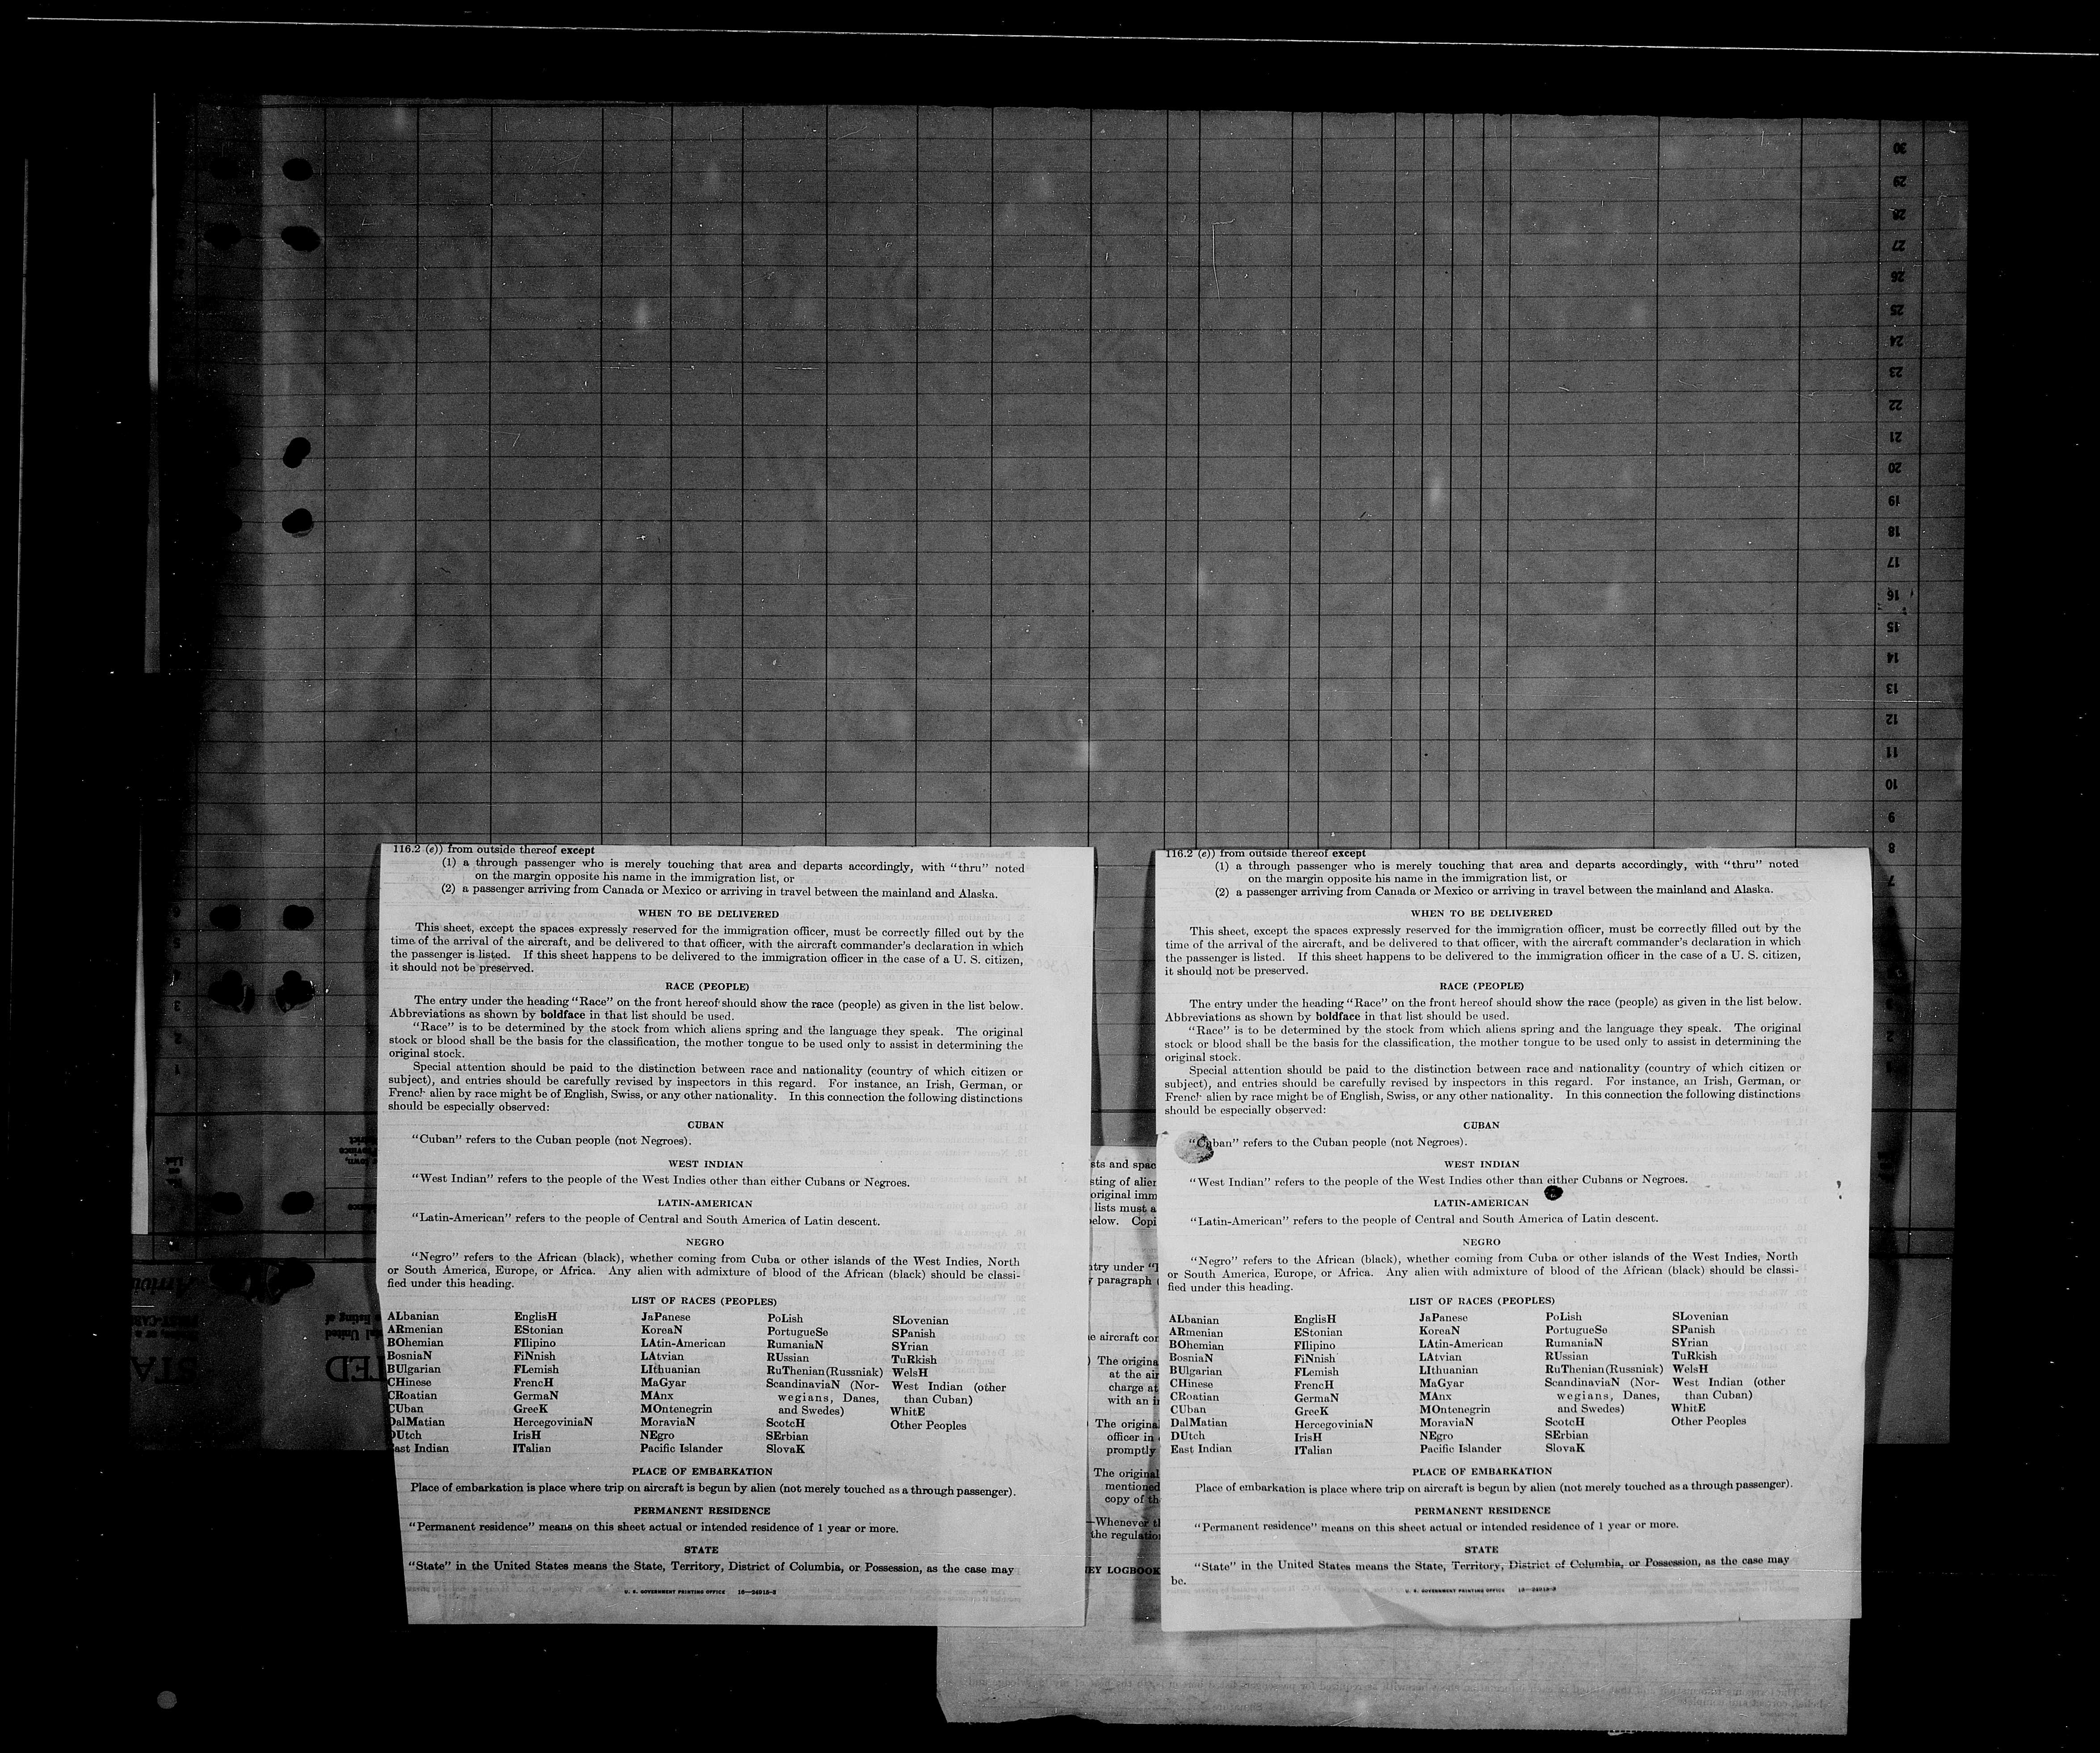 30
29
28
27
26
25
24
23
22
21
20
19
18
17
16
15
14
13
12
11
10
9
8
7
116.2 (e)) from outside thereof except
(1) a through passenger who is merely touching that area and departs accordingly, with "thru" noted
on the margin opposite his name in the immigration list, or
(2) a passenger arriving from Canada or Mexico or arriving in travel between the mainland and Alaska.
WHEN TO BE DELIVERED
This sheet, except the spaces expressly reserved for the immigration officer, must be correctly filled out by the
time of the arrival of the aircraft, and be delivered to that officer, with the aircraft commander's declaration in which
the passenger is listed. If this sheet happens to be delivered to the immigration officer in the case of a U. S. citizen,
it should not be preserved.
RACE (PEOPLE)
The entry under the heading "Race" on the front hereof should show the race (people) as given in the list below.
Abbreviations as shown by boldface in that list should be used.
"Race" is to be determined by the stock from which aliens spring and the language they speak. The original
stock or blood shall be the basis for the classification, the mother tongue to be used only to assist in determining the
original stock.
Special attention should be paid to the distinction between race and nationality (country of which citizen or
subject), and entries should be carefully revised by inspectors in this regard. For instance, an Irish, German, or
French alien by race might be of English, Swiss, or any other nationality. In this connection the following distinctions
should be especially observed:
CUBAN
"Cuban" refers to the Cuban people (not Negroes).
WEST INDIAN
"West Indian" refers to the people of the West Indies other than either Cubans or Negroes.
LATIN-AMERICAN
"Latin-American" refers to the people of Central and South America of Latin descent.
NEGRO
"Negro" refers to the African (black), whether coming from Cuba or other islands of the West Indies, North
or South America, Europe, or Africa. Any alien with admixture of blood of the African (black) should be classi-
fied under this heading.
LIST OF RACES (PEOPLES)
ALbanian
ARmenian
BOhemian
BosniaN
BUlgarian
CHinese
CRoatian
CUban
DalMatian
DUtch
East Indian
EnglisH
EStonian
FIlipino
FiNnish
FLemish
FrencH
GermaN
GreeK
HercegoviniaN
IrisH
ITalian
JaPanese
KoreaN
LAtin-American
LAtvian
LIthuanian
MaGyar
MAnx
MOntenegrin
MoraviaN
NEgro
Pacific Islander
PoLish
PortugueSe
RumaniaN
RUssian
RuThenian (Russniak)
ScandinaviaN (Nor-
wegians, Danes,
and Swedes)
ScotcH
SErbian
SlovaK
SLovenian
SPanish
SYrian
TuRkish
WelsH
West Indian (other
than Cuban)
WhitE
Other Peoples
PLACE OF EMBARKATION
Place of embarkation is place where trip on aircraft is begun by alien (not merely touched as a through passenger).
PERMANENT RESIDENCE
"Permanent residence" means on this sheet actual or intended residence of 1 year or more.
STATE
"State" in the United States means the State, Territory, District of Columbia, or Possession, as the case may
U. S. GOVERNMENT PRINTING OFFICE 16—24915-3
sts and spac
sting of alien
original imm
lists must a
elow. Copi
try under "I
paragraph
e aircraft con
) The origina
at the air
charge at
with an i
The origina
officer in
promptly
The original
mentioned
copy of th
—Whenever t
the regulatio
EY LOGBOOK
116.2 (e)) from outside thereof except
(1) a through passenger who is merely touching that area and departs accordingly, with "thru" noted
on the margin opposite his name in the immigration list, or
(2) a passenger arriving from Canada or Mexico or arriving in travel between the mainland and Alaska.
WHEN TO BE DELIVERED
This sheet, except the spaces expressly reserved for the immigration officer, must be correctly filled out by the
time of the arrival of the aircraft, and be delivered to that officer, with the aircraft commander's declaration in which
the passenger is listed. If this sheet happens to be delivered to the immigration officer in the case of a U. S. citizen,
it should not be preserved.
RACE (PEOPLE)
The entry under the heading "Race" on the front hereof should show the race (people) as given in the list below.
Abbreviations as shown by boldface in that list should be used.
"Race" is to be determined by the stock from which aliens spring and the language they speak. The original
stock or blood shall be the basis for the classification, the mother tongue to be used only to assist in determining the
original stock.
Special attention should be paid to the distinction between race and nationality (country of which citizen or
subject), and entries should be carefully revised by inspectors in this regard. For instance, an Irish, German, or
French alien by race might be of English, Swiss, or any other nationality. In this connection the following distinctions
should be especially observed:
CUBAN
"Cuban" refers to the Cuban people (not Negroes).
WEST INDIAN
"West Indian" refers to the people of the West Indies other than either Cubans or Negroes.
LATIN-AMERICAN
"Latin-American" refers to the people of Central and South America of Latin descent.
NEGRO
"Negro" refers to the African (black), whether coming from Cuba or other islands of the West Indies, North
or South America, Europe, or Africa. Any alien with admixture of blood of the African (black) should be classi-
fied under this heading.
LIST OF RACES (PEOPLES)
ALbanian
ARmenian
BOhemian
BosniaN
BUlgarian
CHinese
CRoatian
CUban
DalMatian
DUtch
East Indian
EnglisH
EStonian
FIlipino
FiNnish
FLemish
FrencH
GermaN
GreeK
HercegoviniaN
IrisH
ITalian
JaPanese
KoreaN
LAtin-American
LAtvian
LIthuanian
MaGyar
MAnx
MOntenegrin
MoraviaN
NEgro
Pacific Islander
PoLish
PortugueSe
RumaniaN
RUssian
RuThenian (Russniak)
ScandinaviaN (Nor-
wegians, Danes,
and Swedes)
ScotcH
SErbian
SlovaK
SLovenian
SPanish
SYrian
TuRkish
WelsH
West Indian (other
than Cuban)
WhitE
Other Peoples
PLACE OF EMBARKATION
Place of embarkation is place where trip on aircraft is begun by alien (not merely touched as a through passenger).
PERMANENT RESIDENCE
"Permanent residence" means on this sheet actual or intended residence of 1 year or more.
STATE
"State" in the United States means the State, Territory, District of Columbia, or Possession, as the case may
be.
U. S. GOVERNMENT PRINTING OFFICE 16—24915-3